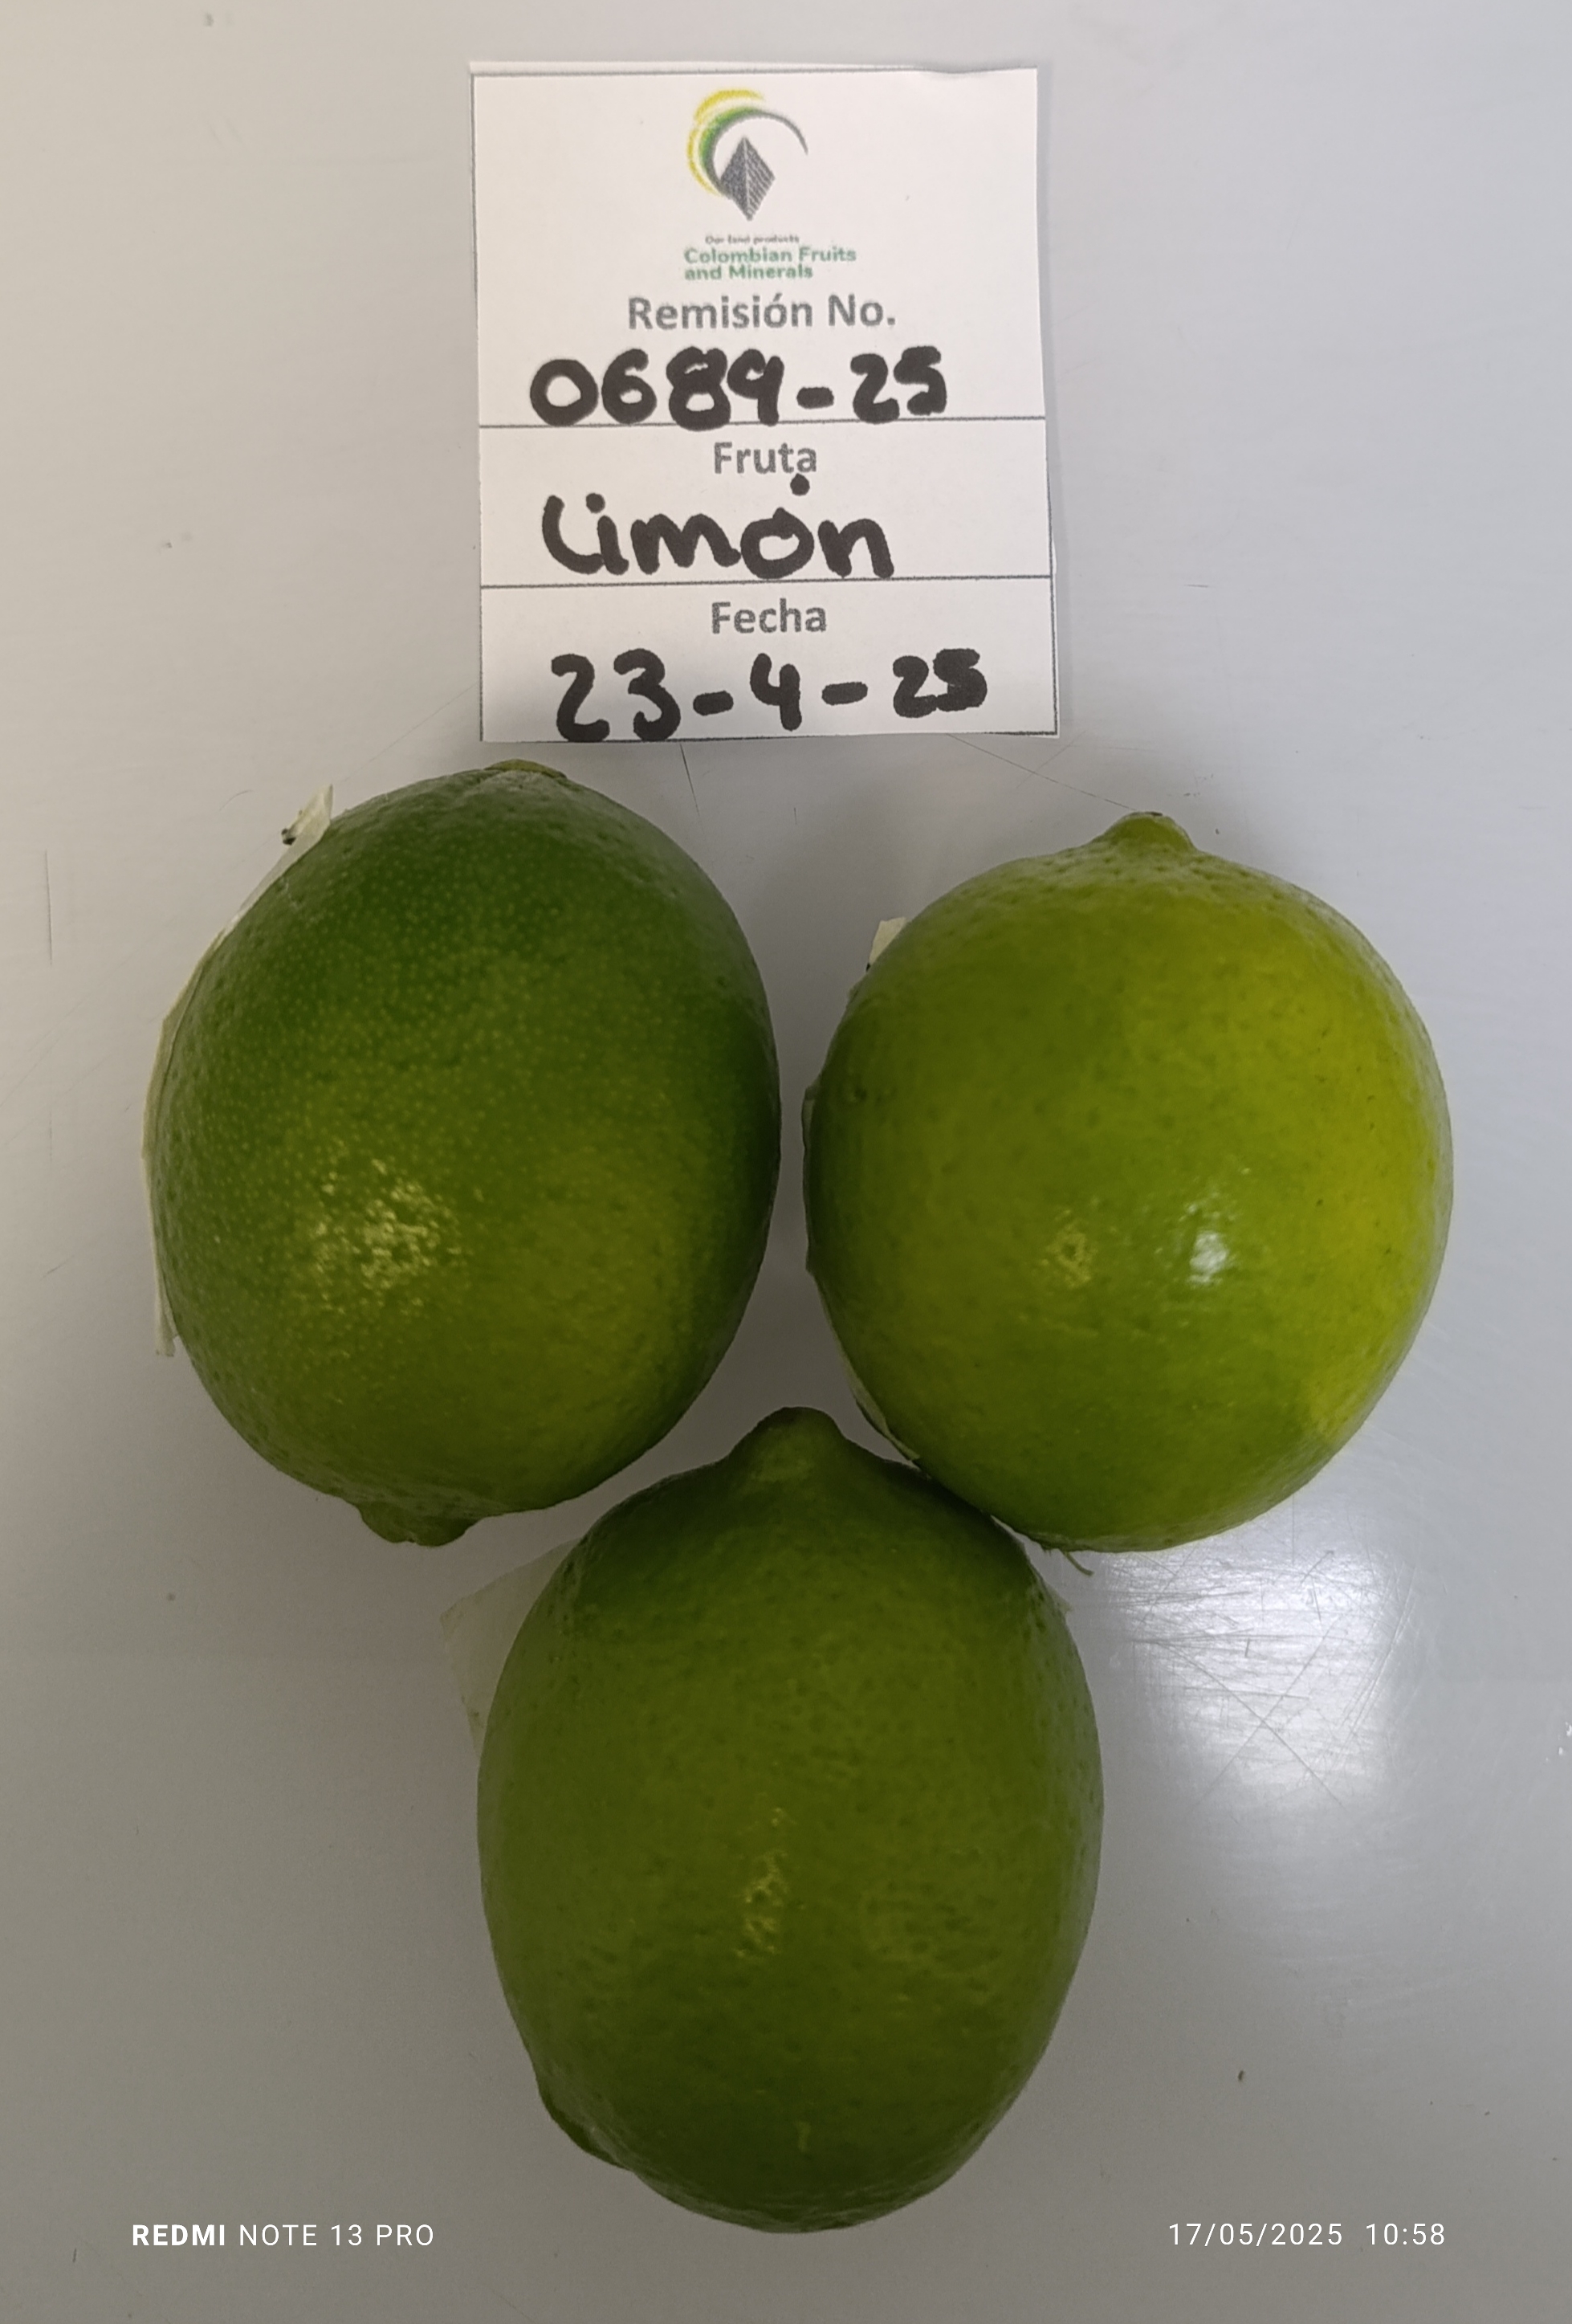 Our land products
Colombian Fruits
and Minerals
Remisión No.
0689-25
Fruta
Limón
Fecha
23-4-25
REDMI NOTE 13 PRO
17/05/2025 10:58